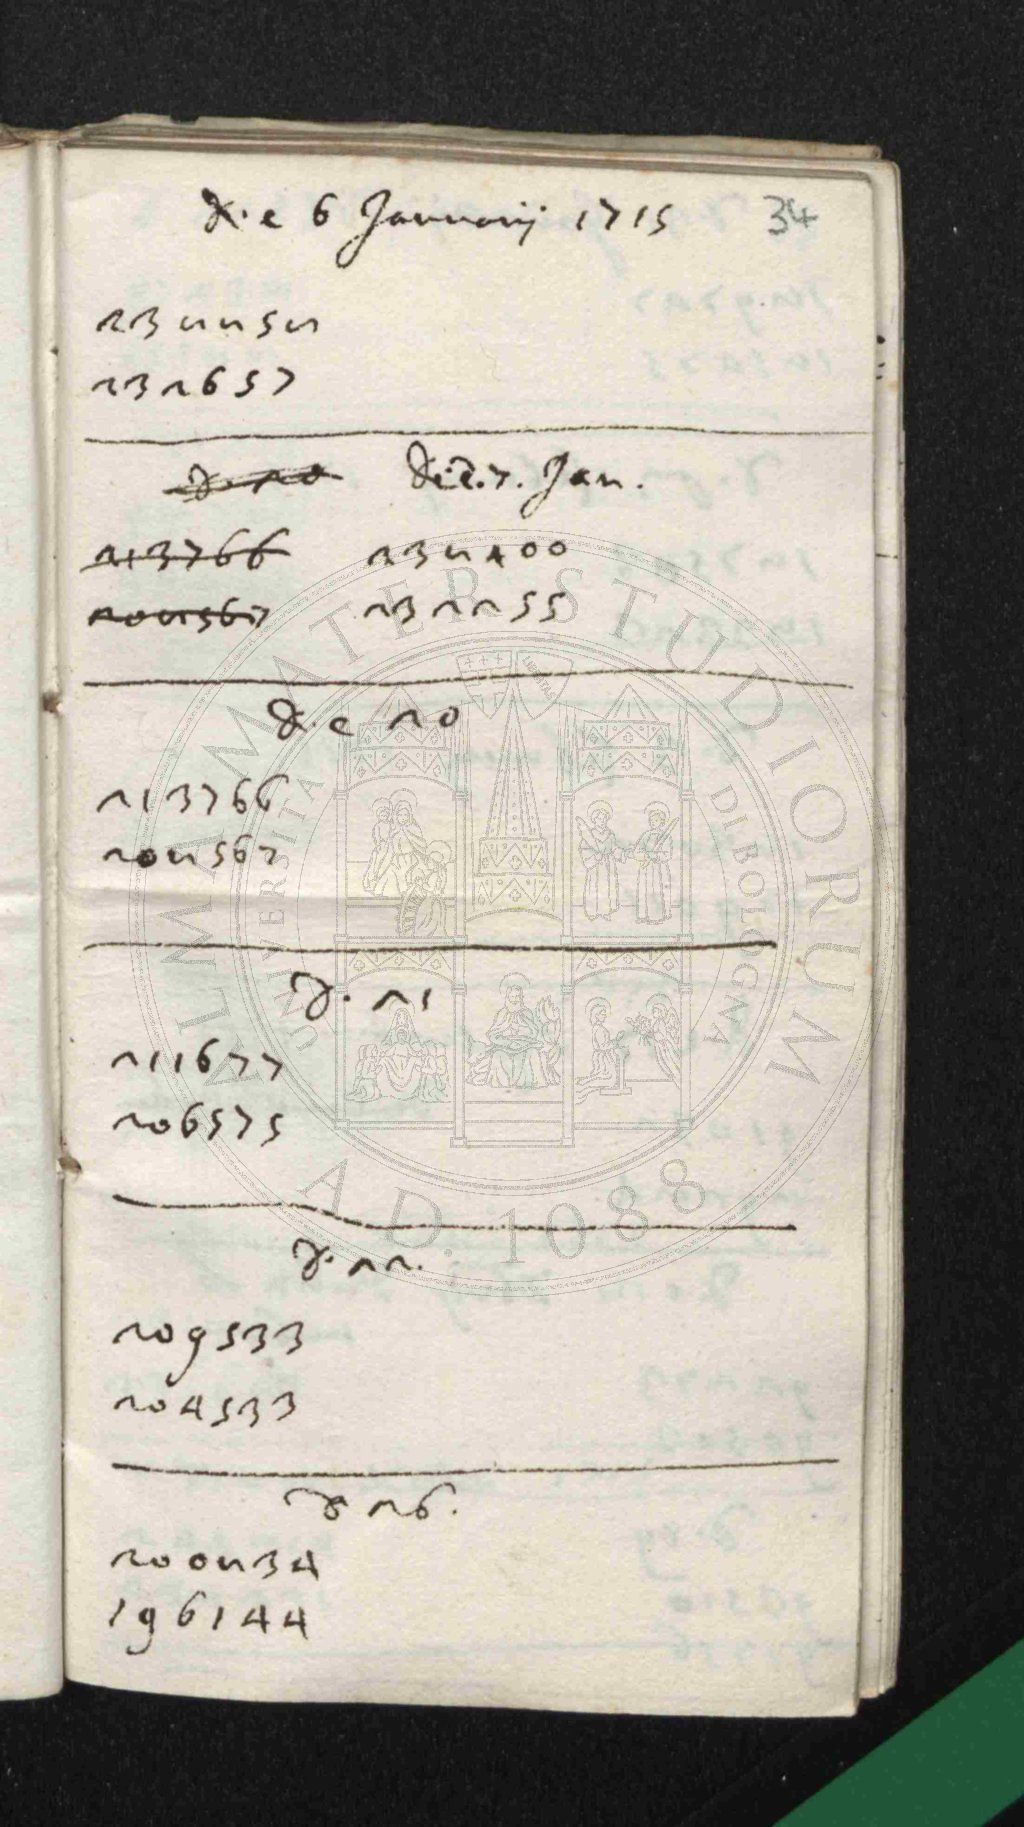 Die 6 Januarij 1715 34
238858
232657
D. 20 Die 7. Jan.
213766 238400
208567 232255
Die 20
213766
208567
D. 21
211677
206575
D. 22.
209533
204533
D 26.
200834
196144
ALMA MATER STUDIORUM
UNIVERSITÀ DI BOLOGNA
A.D. 1088